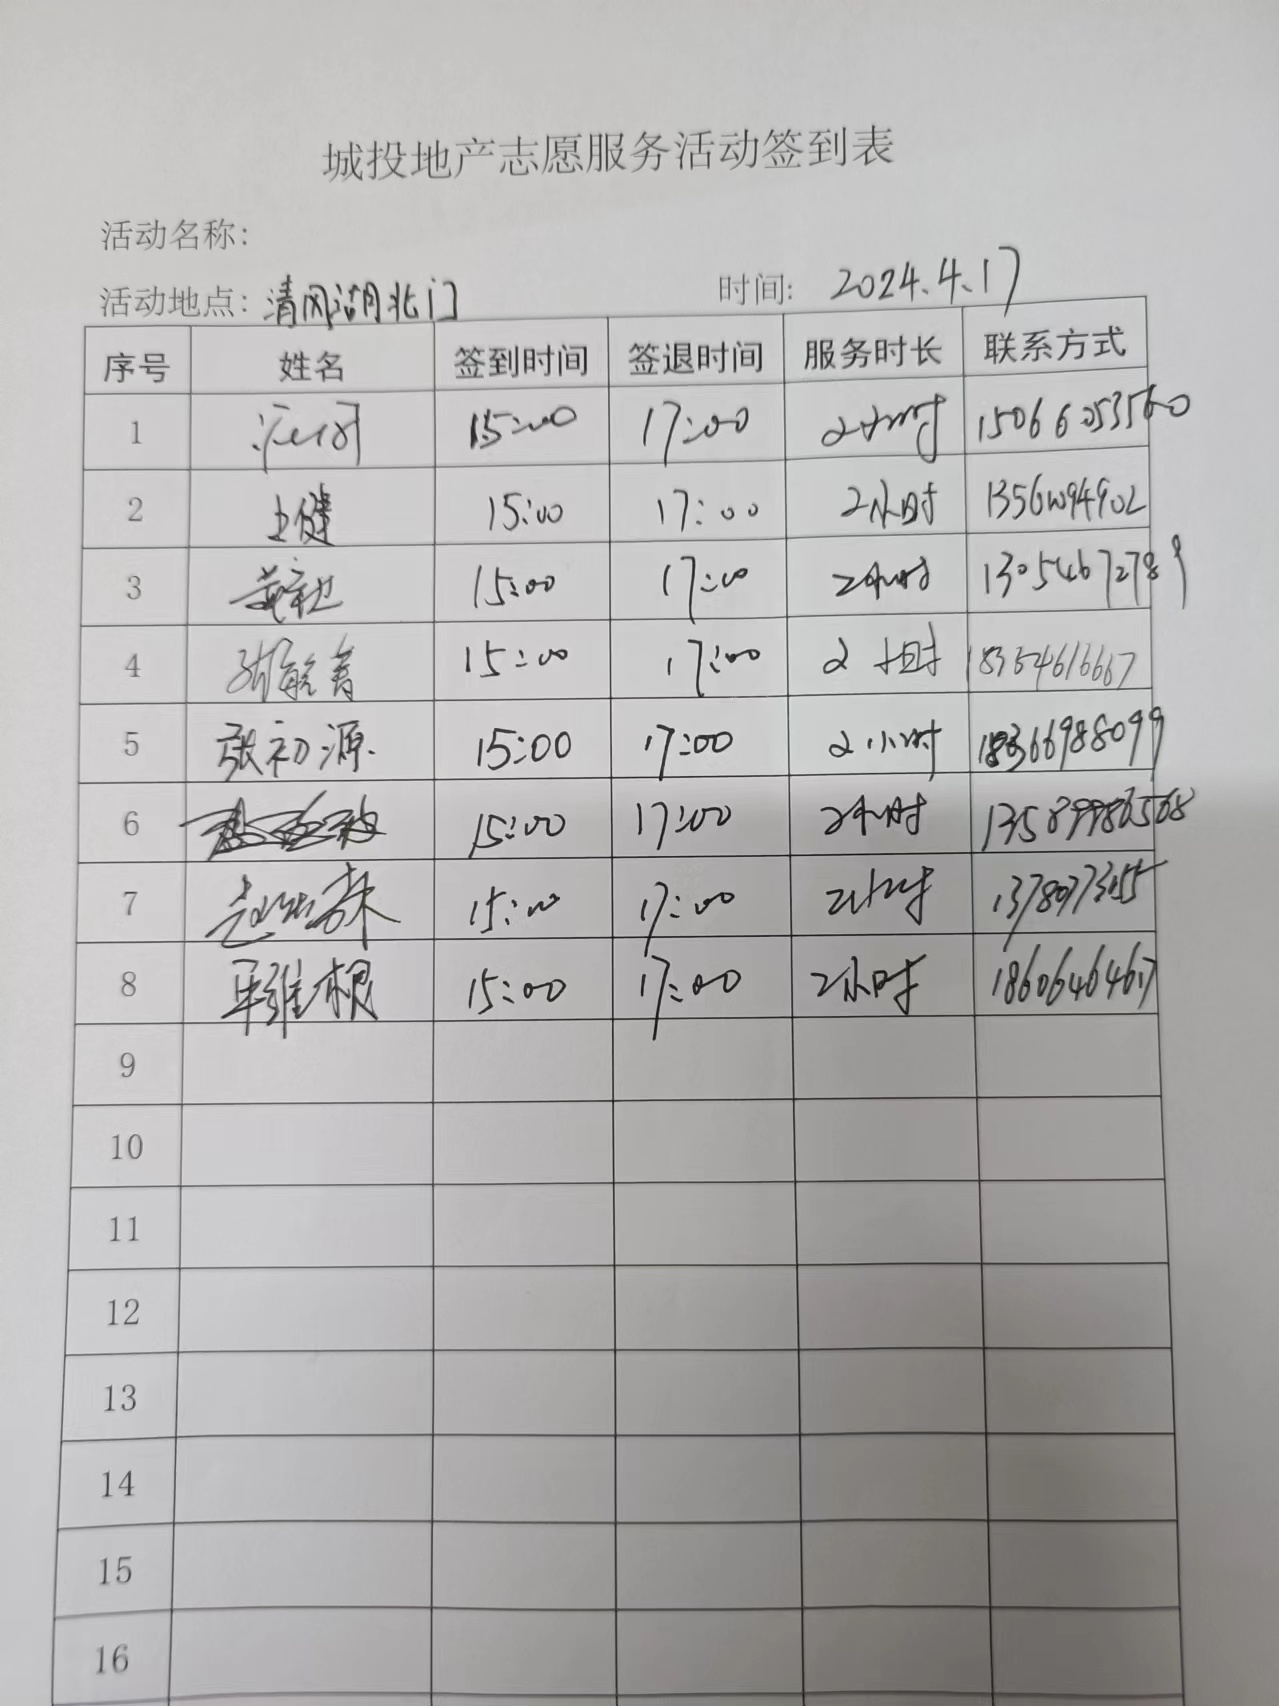 城投地产志愿服务活动签到表
活动名称:
活动地点: 清风湖北门 时间: 2024.4.17
序号 姓名 签到时间 签退时间 服务时长 联系方式
1 15:00 17:00 2小时 15066053560
2 王健 15:00 17:00 2小时
3 15:00 17:00 2小时 13054672789
4 15:00 17:00 2小时 18354616667
5 张初源 15:00 17:00 2小时 18366988099
6 15:00 17:00 2小时 13589986568
7 15:00 17:00 2小时
8 15:00 17:00 2小时 18606464617
9
10
11
12
13
14
15
16